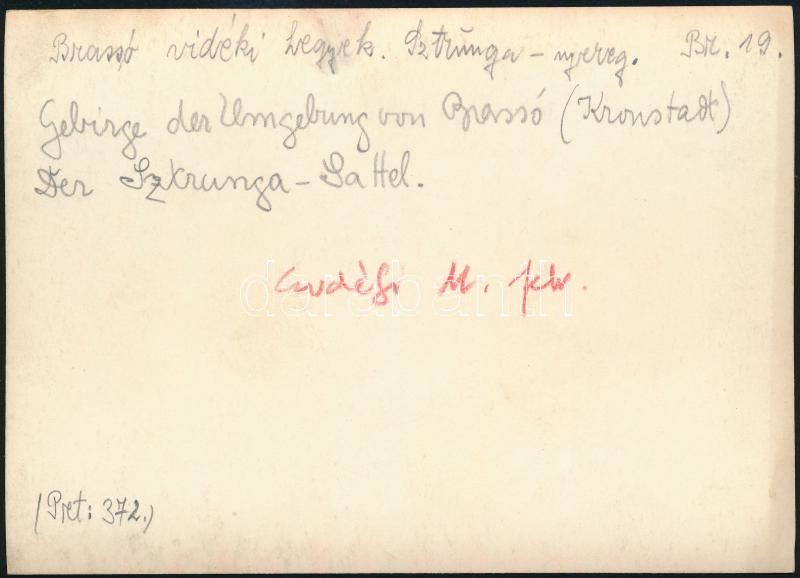 Brassó vidéki hegyek. Sztrunga - nyereg. Br. 19.
Gebirge der Umgebung von Brassó (Kronstadt)
Der Sztrunga - Sattel.
M.
darabanth
(Pret: 372.)